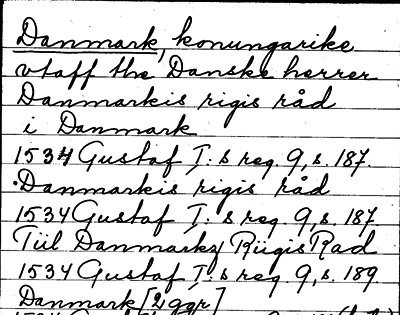 Danmark, konungarike
vtaff the Danske herrer
Danmarkis rigis råd
i Danmark
1534 Gustaf I:s reg. 9, s. 187.
Danmarkis rigis råd
1534 Gustaf I:s reg. 9, s. 187
Tiil Danmarkz Riigis Rad
1534 Gustaf I:s reg. 9, s. 189
Danmark [2 ggr]